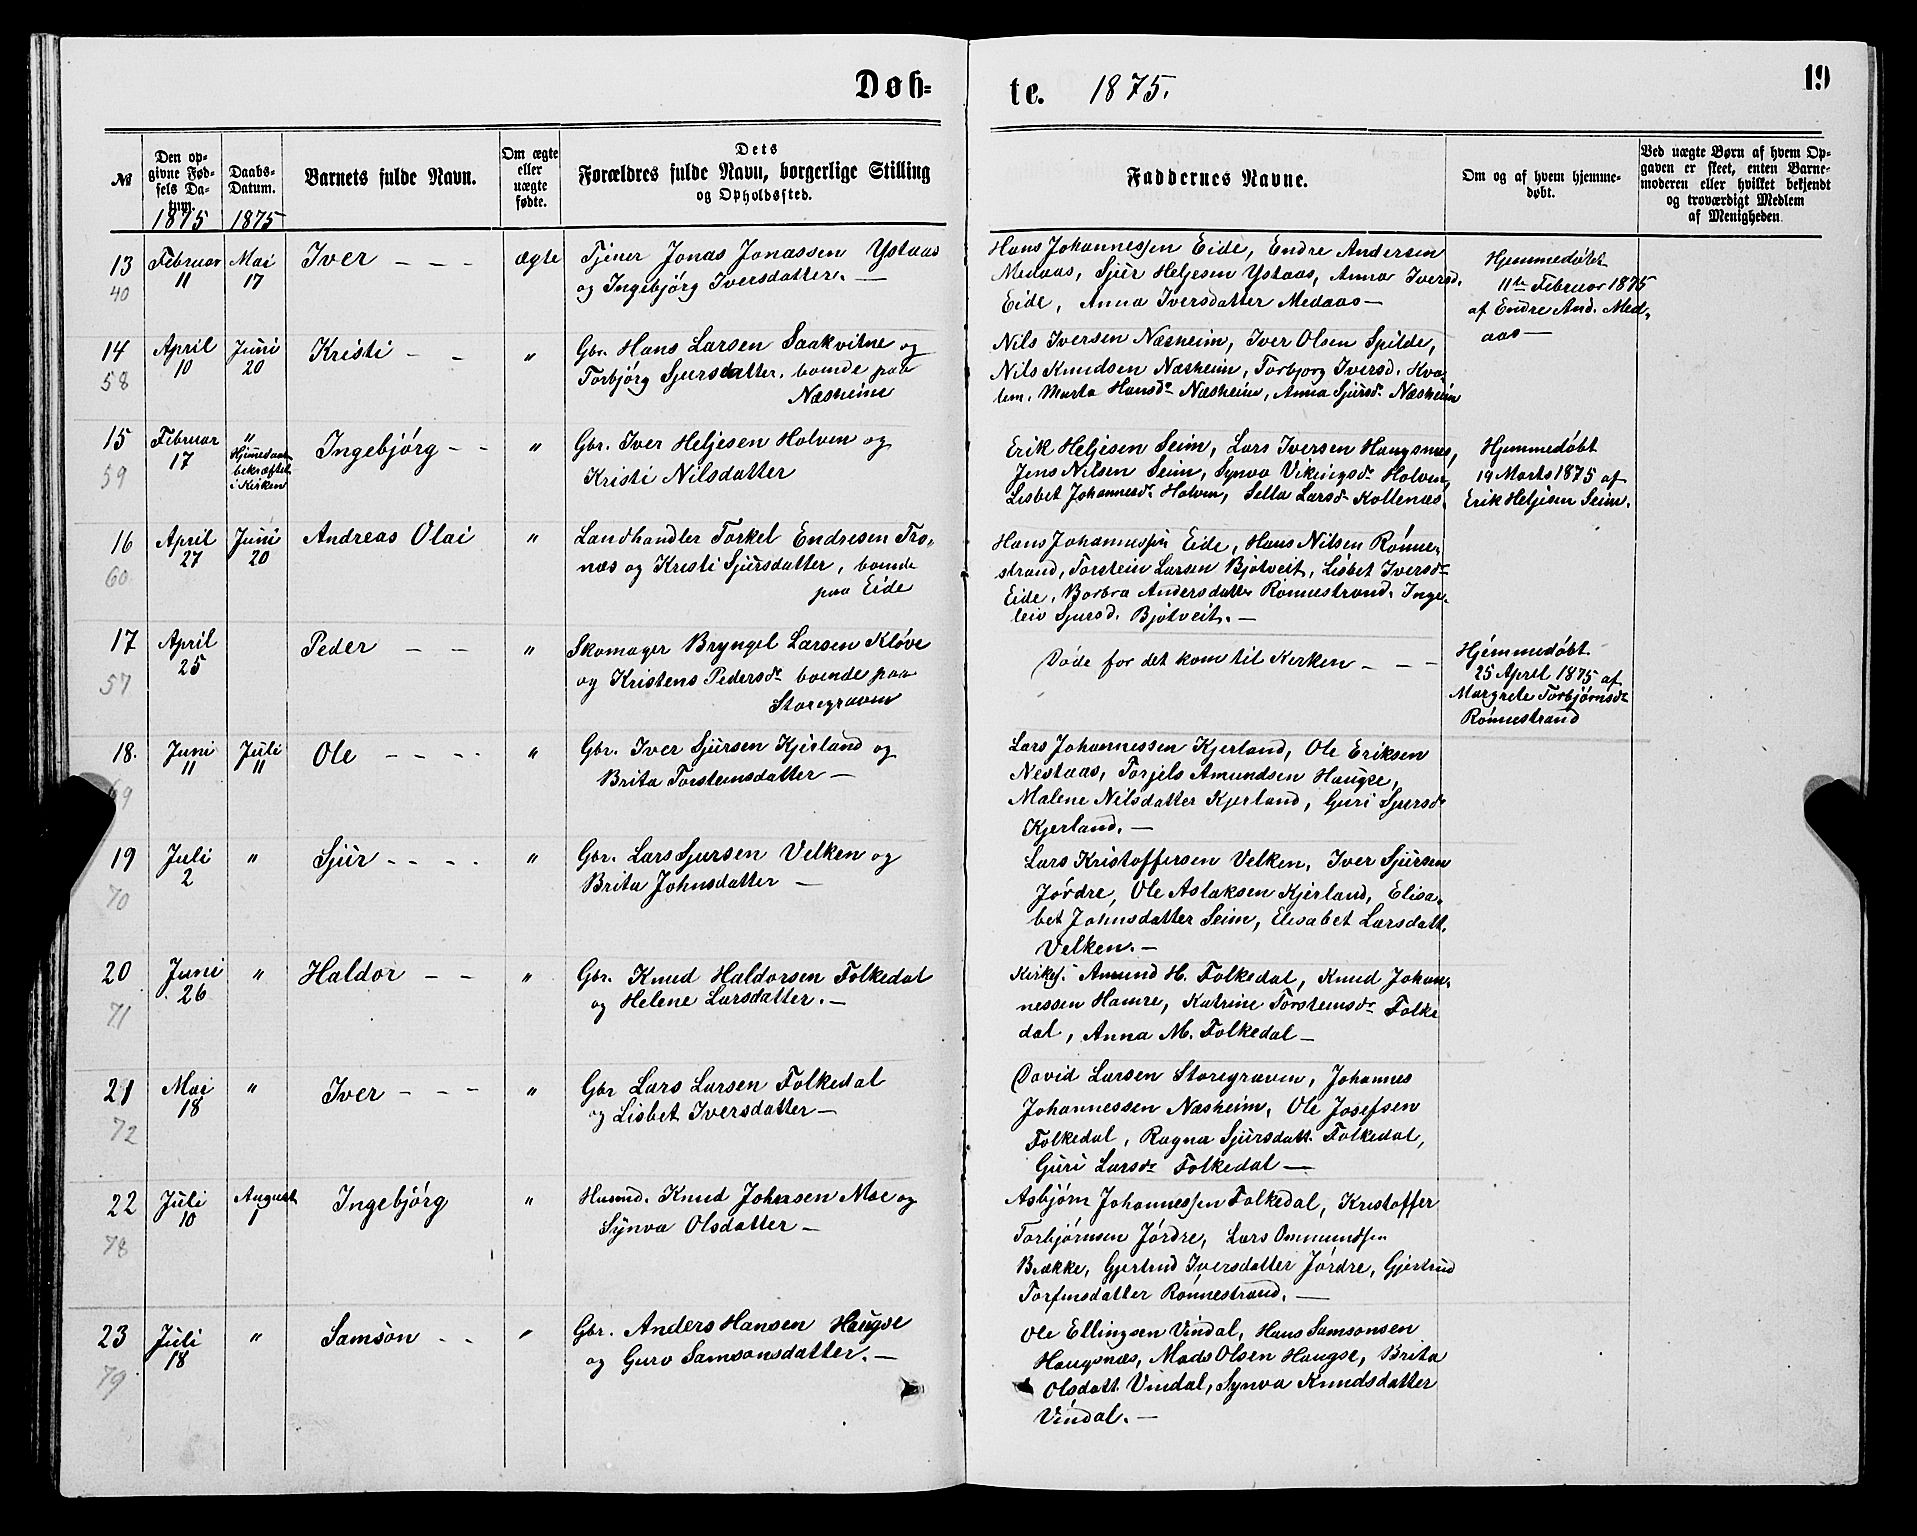 Døb=
te. 1875.
19
№
Den op-
givne Fød-
sels Da-
tum.
1875
Daabs-
Datum.
1875
Barnets fulde Navn.
Om ægte
eller
uægte
fødte.
Dets
Forældres fulde Navn, borgerlige Stilling
og Opholdssted.
Faddernes Navne.
Om og af hvem hjemme-
døbt.
Ved uægte Børn af hvem Op-
gaven er skeet, enten Barne-
moderen eller hvilket bekjendt
og troværdigt Medlem
af Menigheden
13
40
Februar
11
Mai
17
Iver – – –
ægte
Tjener Jonas Jonassen Ystaas
og Ingebjörg Iversdatter. —
Hans Johannessen Eide, Endre Andersen
Medaas, Sjür Heljesen Ystaas, Anna Iversd.
Eide, Anna Iversdatter Medaas —
Hjemmedöbt
11te Februar 1875
af Endre And. Med-
aas —
14
58
April
10
Juni
20
Kristi – –
"
Gbr. Hans Larsen Saakvitne og
Torbjörg Sjursdatter, boende paa
Næsheim
Nils Iversen Næsheim, Iver Olsen Spilde,
Nils Knudsen Næsheim, Torbjorg Iversd. Hva-
lem, Marta Hansdr Næsheim, Anna Sjursdr Næsheim
15
59
Februar
17
"
Hjemmedaab
bekræftet
i Kirken
Ingebjörg – –
"
Gbr. Iver Heljesen Holven og
Kristi Nilsdatter
Erik Heljesen Seim, Lars Iversen Haugsnæs,
Jens Nilsen Seim, Synva Vikingsdr Holven,
Lisbet Johannesdr Holven, Sella Larsdr Kollenæs.
Hjemmedöbt
19 Marts 1875 af
Erik Heljesen Seim.
16
60
April
27
Juni
20
Andreas Olai
"
Landhandler Torkel Endresen Tro-
næs og Kristi Sjürsdatter, boende
paa Eide
Hans Johannessen Eide, Hans Nilsen Rönne-
strand, Torstein Larsen Bjotveit, Lisbet Iversdr
Eide, Barbra Andersdatter Rönnestrand, Inge-
leiv Sjursd. Bjötveit. —
17
57
April
25
Peder – –
"
Skomager Bryngel Larsen Klöve
og Kristens Pedersdr boende paa
Storegraven
Döde för det kom til Kirken – – –
Hjemmedöbt
25 April 1875 af
Margrete Torbjörnsdr
Rönnestrand
18.
69
Juni
11
Juli
11
Ole – – – –
"
Gbr. Iver Sjürsen Kjerland og
Brita Torsteinsdatter —
Lars Johannessen Kjerland, Ole Eriksen
Nestaas, Torjels Amundsen Haugse,
Malene Nilsdatter Kjerland, Guri Sjursdr
Kjerland. —
19
70
Juli
2
"
Sjür – – – –
"
Gbr. Lars Sjursen Velken og
Brita Johnsdatter —
Lars Kristoffersen Velken, Iver Sjürsen
Jördre, Ole Aslaksen Kjerland, Elisa-
bet Johnsdatter Seim, Elisabet Larsdatt.
Velken. —
20
71
Juni
26
"
Haldor – –
"
Gbr. Knud Haldorsen Folkedal
og Helene Larsdatter. —
Kirkes. Amund H. Folkedal, Knud Johan-
nessen Hamre, Katrine Torsteinsdr Folke
dal, Anna M. Folkedal —
21
72
Mai
18
"
Iver – – –
"
Gbr Lars Larsen Folkedal
og Lisbet Iversdatter —
David Larsen Storegraven, Johannes
Johannessen Næsheim, Ole Josefsen
Folkedal, Ragna Sjürsdatt. Folkedal,
Guri Larsdr Folkedal —
22
78
Juli
10
August
1
Ingebjörg
"
Husmd. Knud Johnsen Moe og
Synva Olsdatter —
Asbjörn Johannessen Folkedal, Kristoffer
Torbjörnsen Jördre, Lars Ommundsen
Brække, Gjertrud Iversdatter Jördre, Gjertrud
Torfinsdatter Rönnestrand. —
23
79
Juli
18
"
Samson – –
"
Gbr. Anders Hansen Haugse
og Guro Samsonsdatter. —
Ole Ellingsen Vindal, Hans Samsonsen
Haugsnæs, Mads Olsen Haugse, Brita
Olsdatt. Vindal, Synva Knudsdatter
Vindal. —